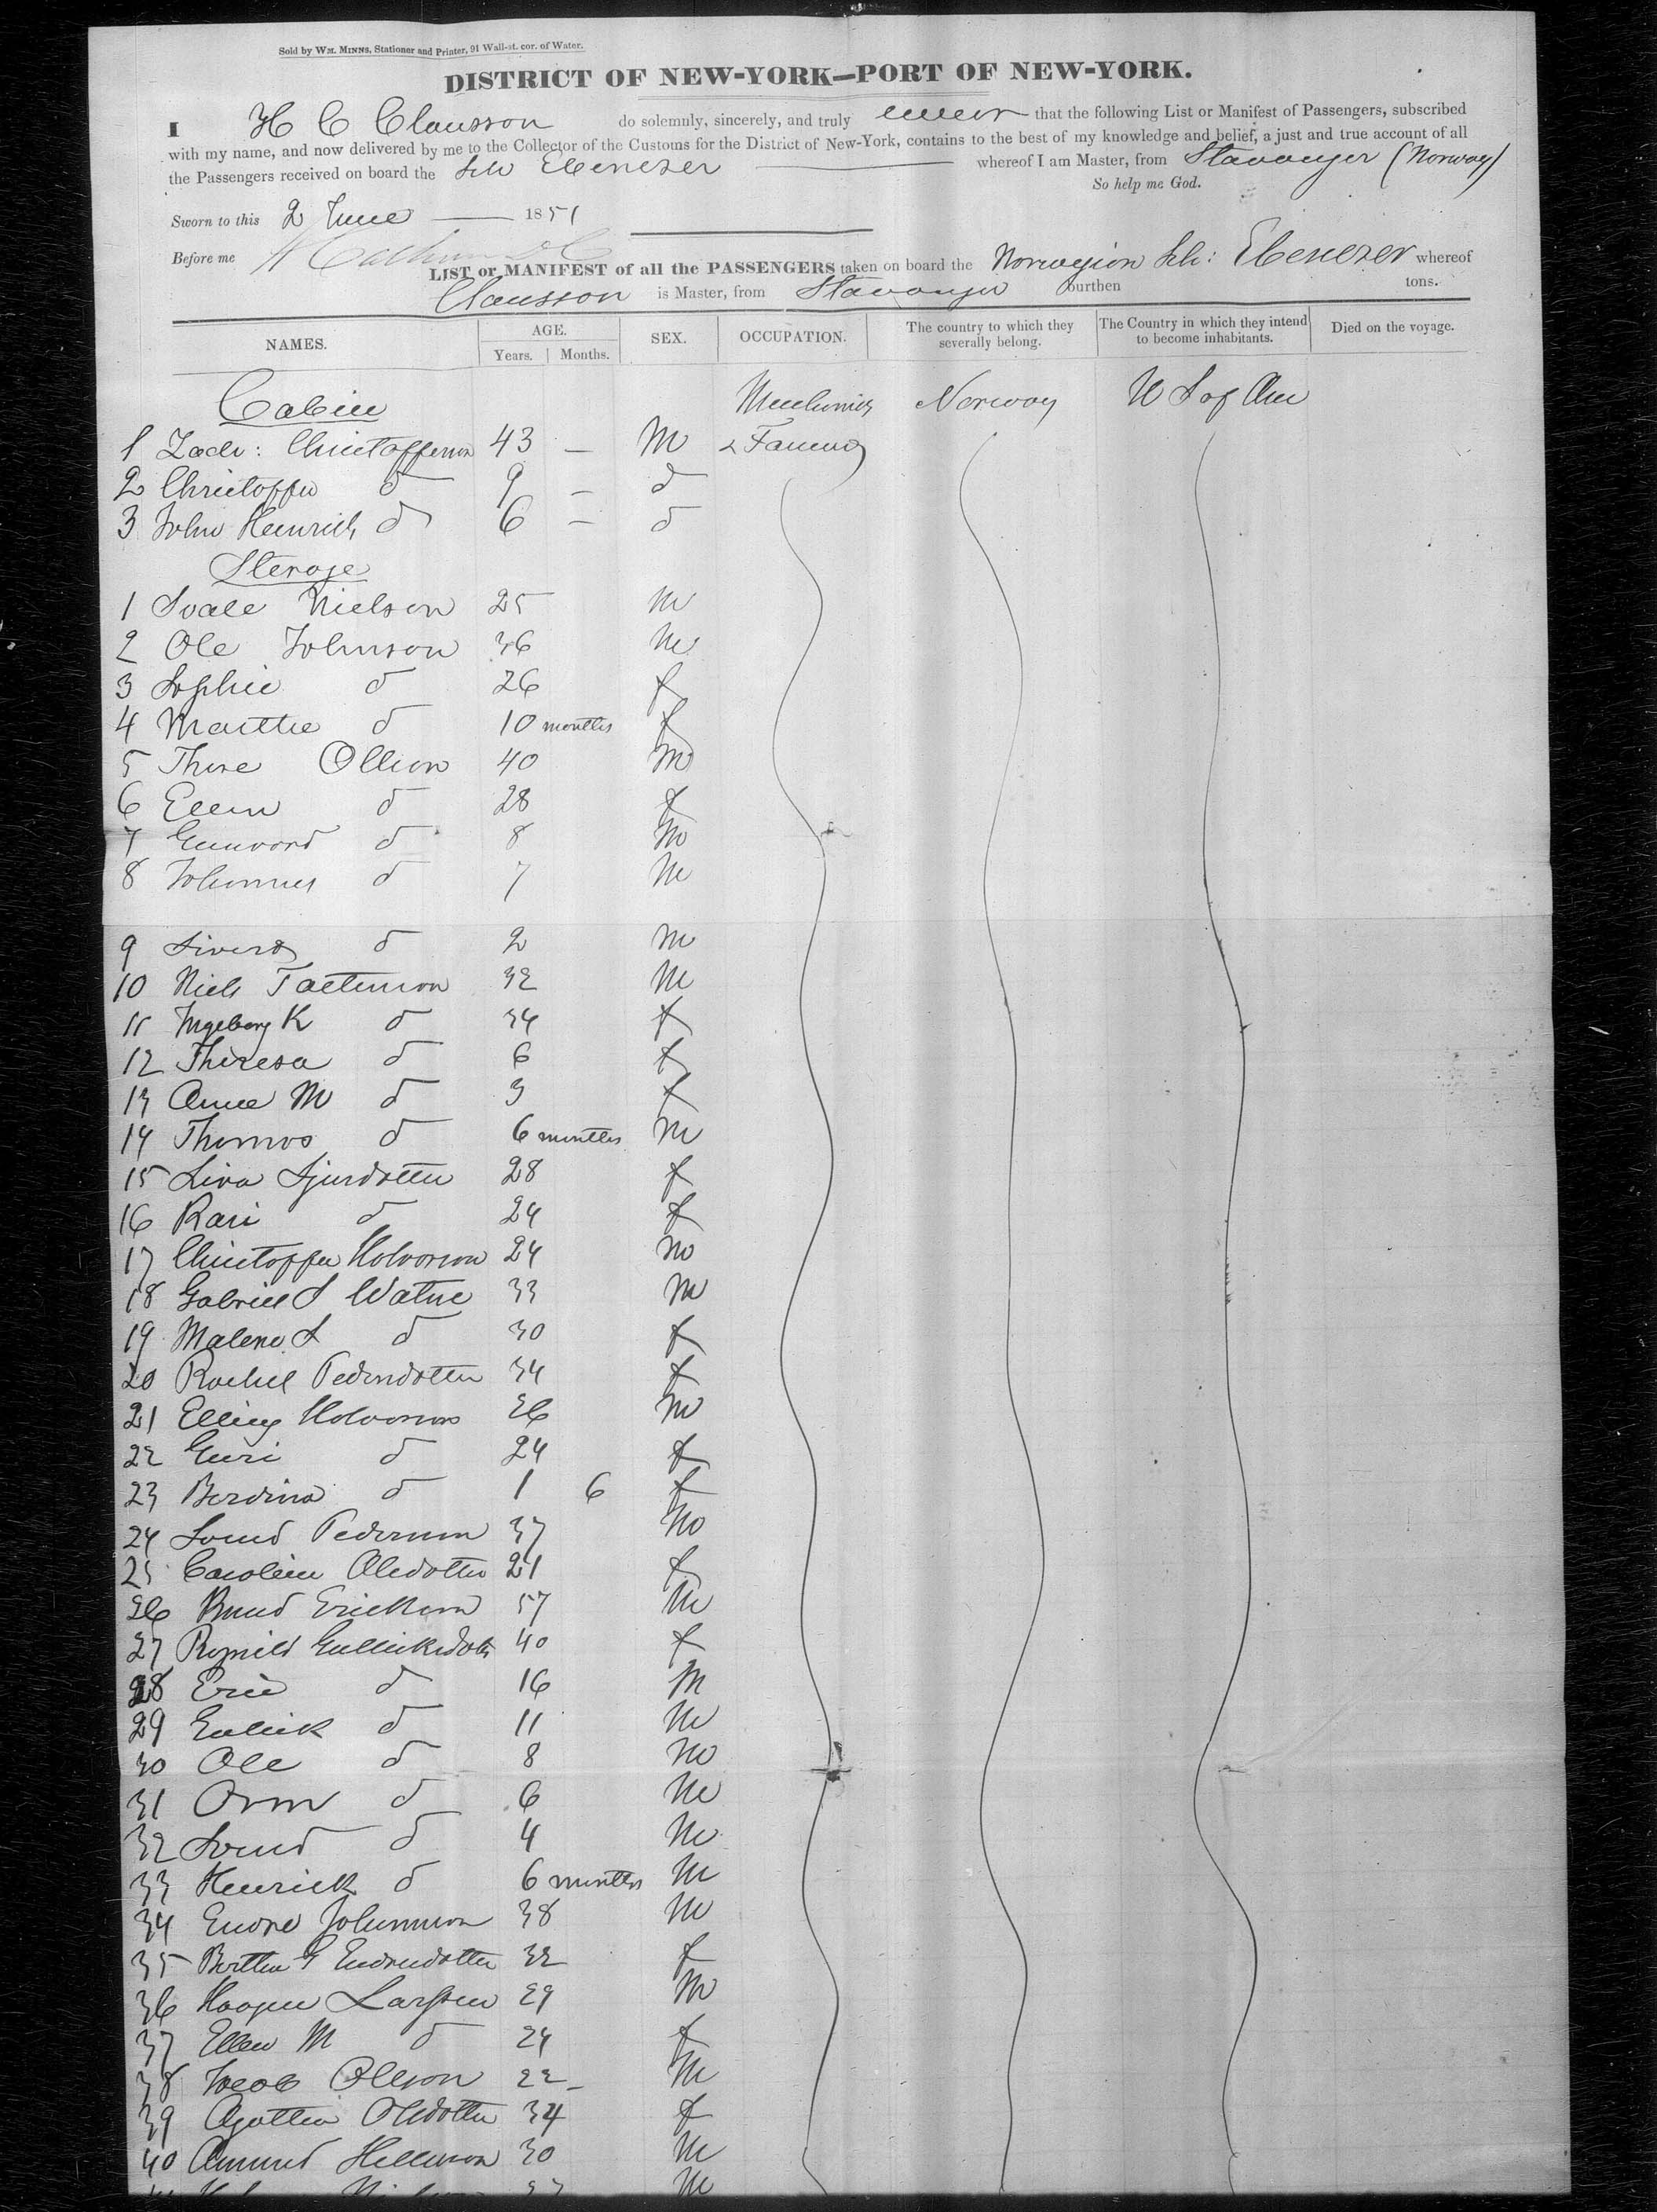 Sold by WM. MINNS, Stationer and Printer, 91 Wall-st. cor. of Water.
DISTRICT OF NEW-YORK—PORT OF NEW-YORK.
I H C Clausson do solemnly, sincerely, and truly swear that the following List or Manifest of Passengers, subscribed
with my name, and now delivered by me to the Collector of the Customs for the District of New-York, contains to the best of my knowledge and belief, a just and true account of all
the Passengers received on board the Sch Ebenezer whereof I am Master, from Stavanger (Norway)
So help me God.
Sworn to this 2 June 1851
Before me
LIST or MANIFEST of all the PASSENGERS taken on board the Norwegian Sch: Ebenezer whereof
Clausson is Master, from Stavanger burthen tons.
NAMES. AGE. Years. Months. SEX. OCCUPATION. The country to which they severally belong. The Country in which they intend to become inhabitants. Died on the voyage.
Cabin Mechanics Norway U S of Am
1 Zach: Christofferson 43 — M & Farmers
2 Christoffer d 9 — d
3 John Heinrich d 6 — d
Sterage
1 Svale Nielson 25 M
2 Ole Johnson 36 M
3 Sophie d 26 f
4 Marthe d 10 months f
5 Thore Ollson 40 M
6 Ellen d 28 f
7 Gunvord d 8 M
8 Johannes d 7 M
9 Sivert d 2 M
10 Niels 32 M
11 Ingeborg K d 34 f
12 Theresa d 6 f
13 Anne M d 3 f
14 Thomas d 6 months M
15 Siva Sjurdotter 28 f
16 Kari d 24 f
17 Christoffer Holvorson 24 M
18 Gabriel S Watne 33 M
19 Malene S d 30 f
20 Rachel Pedersdotter 34 f
21 Elling Holvorson 26 M
22 Guri d 24 f
23 Berdina d 1 6 f
24 Svend Pederson 37 M
25 Caroline Olsdotter 21 f
26 Knud Erickson 57 M
27 Ragnild Gullicksdotr 40 f
28 Eric d 16 M
29 Gullick d 11 M
30 Ole d 8 M
31 Orm d 6 M
32 Svend d 4 M
33 Henrick d 6 months M
34 Endre Johannson 38 M
35 Berthe G Endresdotter 32 f
36 Haagen Larssen 29 M
37 Ellen M d 24 f
38 Jacob Olleson 22 M
39 Agathea Olsdotter 34 f
40 Amund Helleson 30 M
M